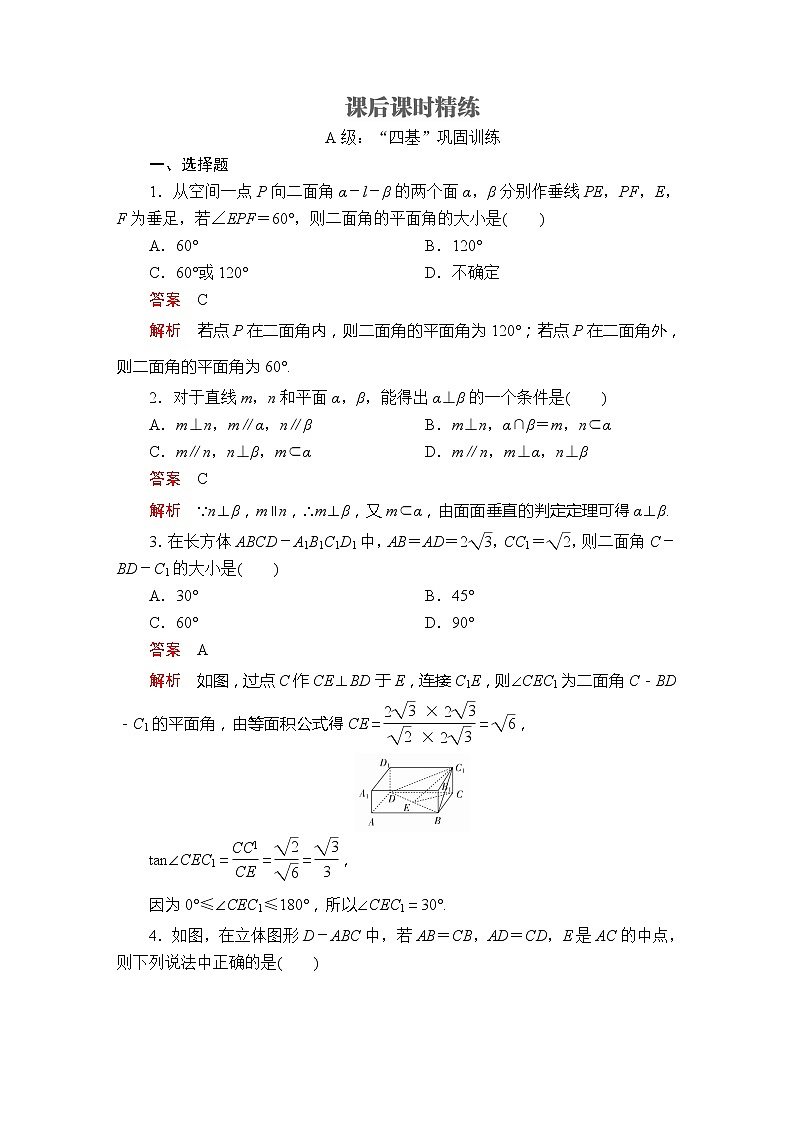 课后课时精练
A 级：“四基”巩固训练
一、选择题
1．从空间一点 P 向二面角 α－l－β 的两个面 α，β 分别作垂线 PE，PF，E，
F 为垂足，若∠EPF＝60°，则二面角的平面角的大小是(　　)
A．60° B．120°
C．60°或 120° D．不确定
答案 C
解析 若点 P 在二面角内，则二面角的平面角为 120°；若点 P 在二面角外，
则二面角的平面角为 60°.
2．对于直线 m，n 和平面 α，β，能得出 α⊥β 的一个条件是(　　)
A．m⊥n，m∥α，n∥β B．m⊥n，α∩β＝m，n⊂α
C．m∥n，n⊥β，m⊂α D．m∥n，m⊥α，n⊥β
答案 C
解析 ∵n⊥β，m∥n，∴m⊥β，又 m⊂α，由面面垂直的判定定理可得 α⊥β.
3．在长方体 ABCD－A₁B₁C₁D₁ 中，AB＝AD＝2√3，CC₁＝√2，则二面角 C－
BD－C₁ 的大小是(　　)
A．30° B．45°
C．60° D．90°
答案 A
解析 如图，过点 C 作 CE⊥BD 于 E，连接 C₁E，则∠CEC₁ 为二面角 C－BD
－C₁ 的平面角，由等面积公式得 CE＝(2√3 × 2√3)/(√2 × 2√3)＝√6，
D₁ C₁
A₁ B₁
D C
E
A B
tan∠CEC₁＝CC¹/CE＝√2/√6＝√3/3，
因为 0°≤∠CEC₁≤180°，所以∠CEC₁＝30°.
4．如图，在立体图形 D－ABC 中，若 AB＝CB，AD＝CD，E 是 AC 的中点，
则下列说法中正确的是(　　)